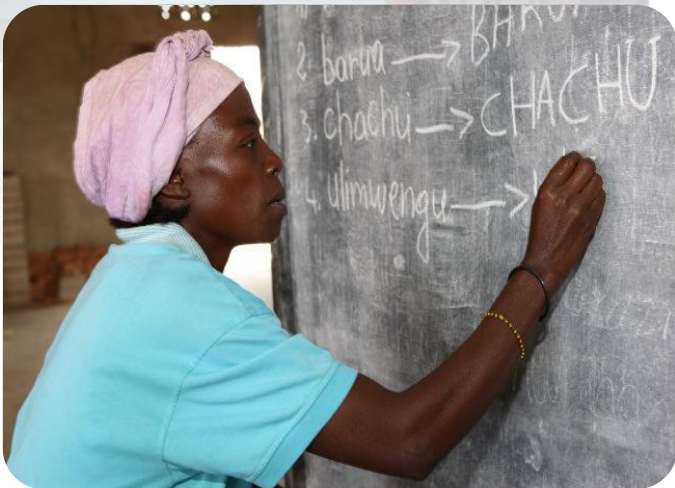 2. barua → BARU
3. chachu → CHACHU
4. ulimwengu →